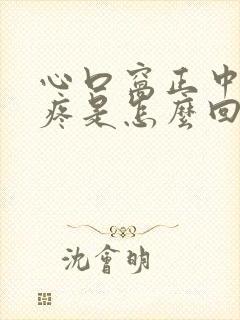 心口窩正中
疼是怎麼回
沈會明